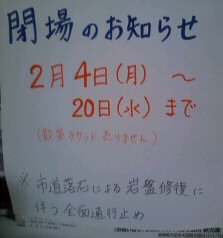 閉場のお知らせ
2月4日(月) ～
20日(水)まで
(散策チケット売りません)
※市道落石による岩盤修復に
伴う全面通行止め